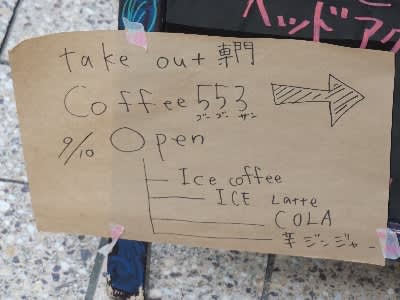 ヘッドアク
take out 専門
Coffee 553
ゴー ゴー サン
9/10 Open
Ice coffee
ICE Latte
COLA
辛ジンジャー